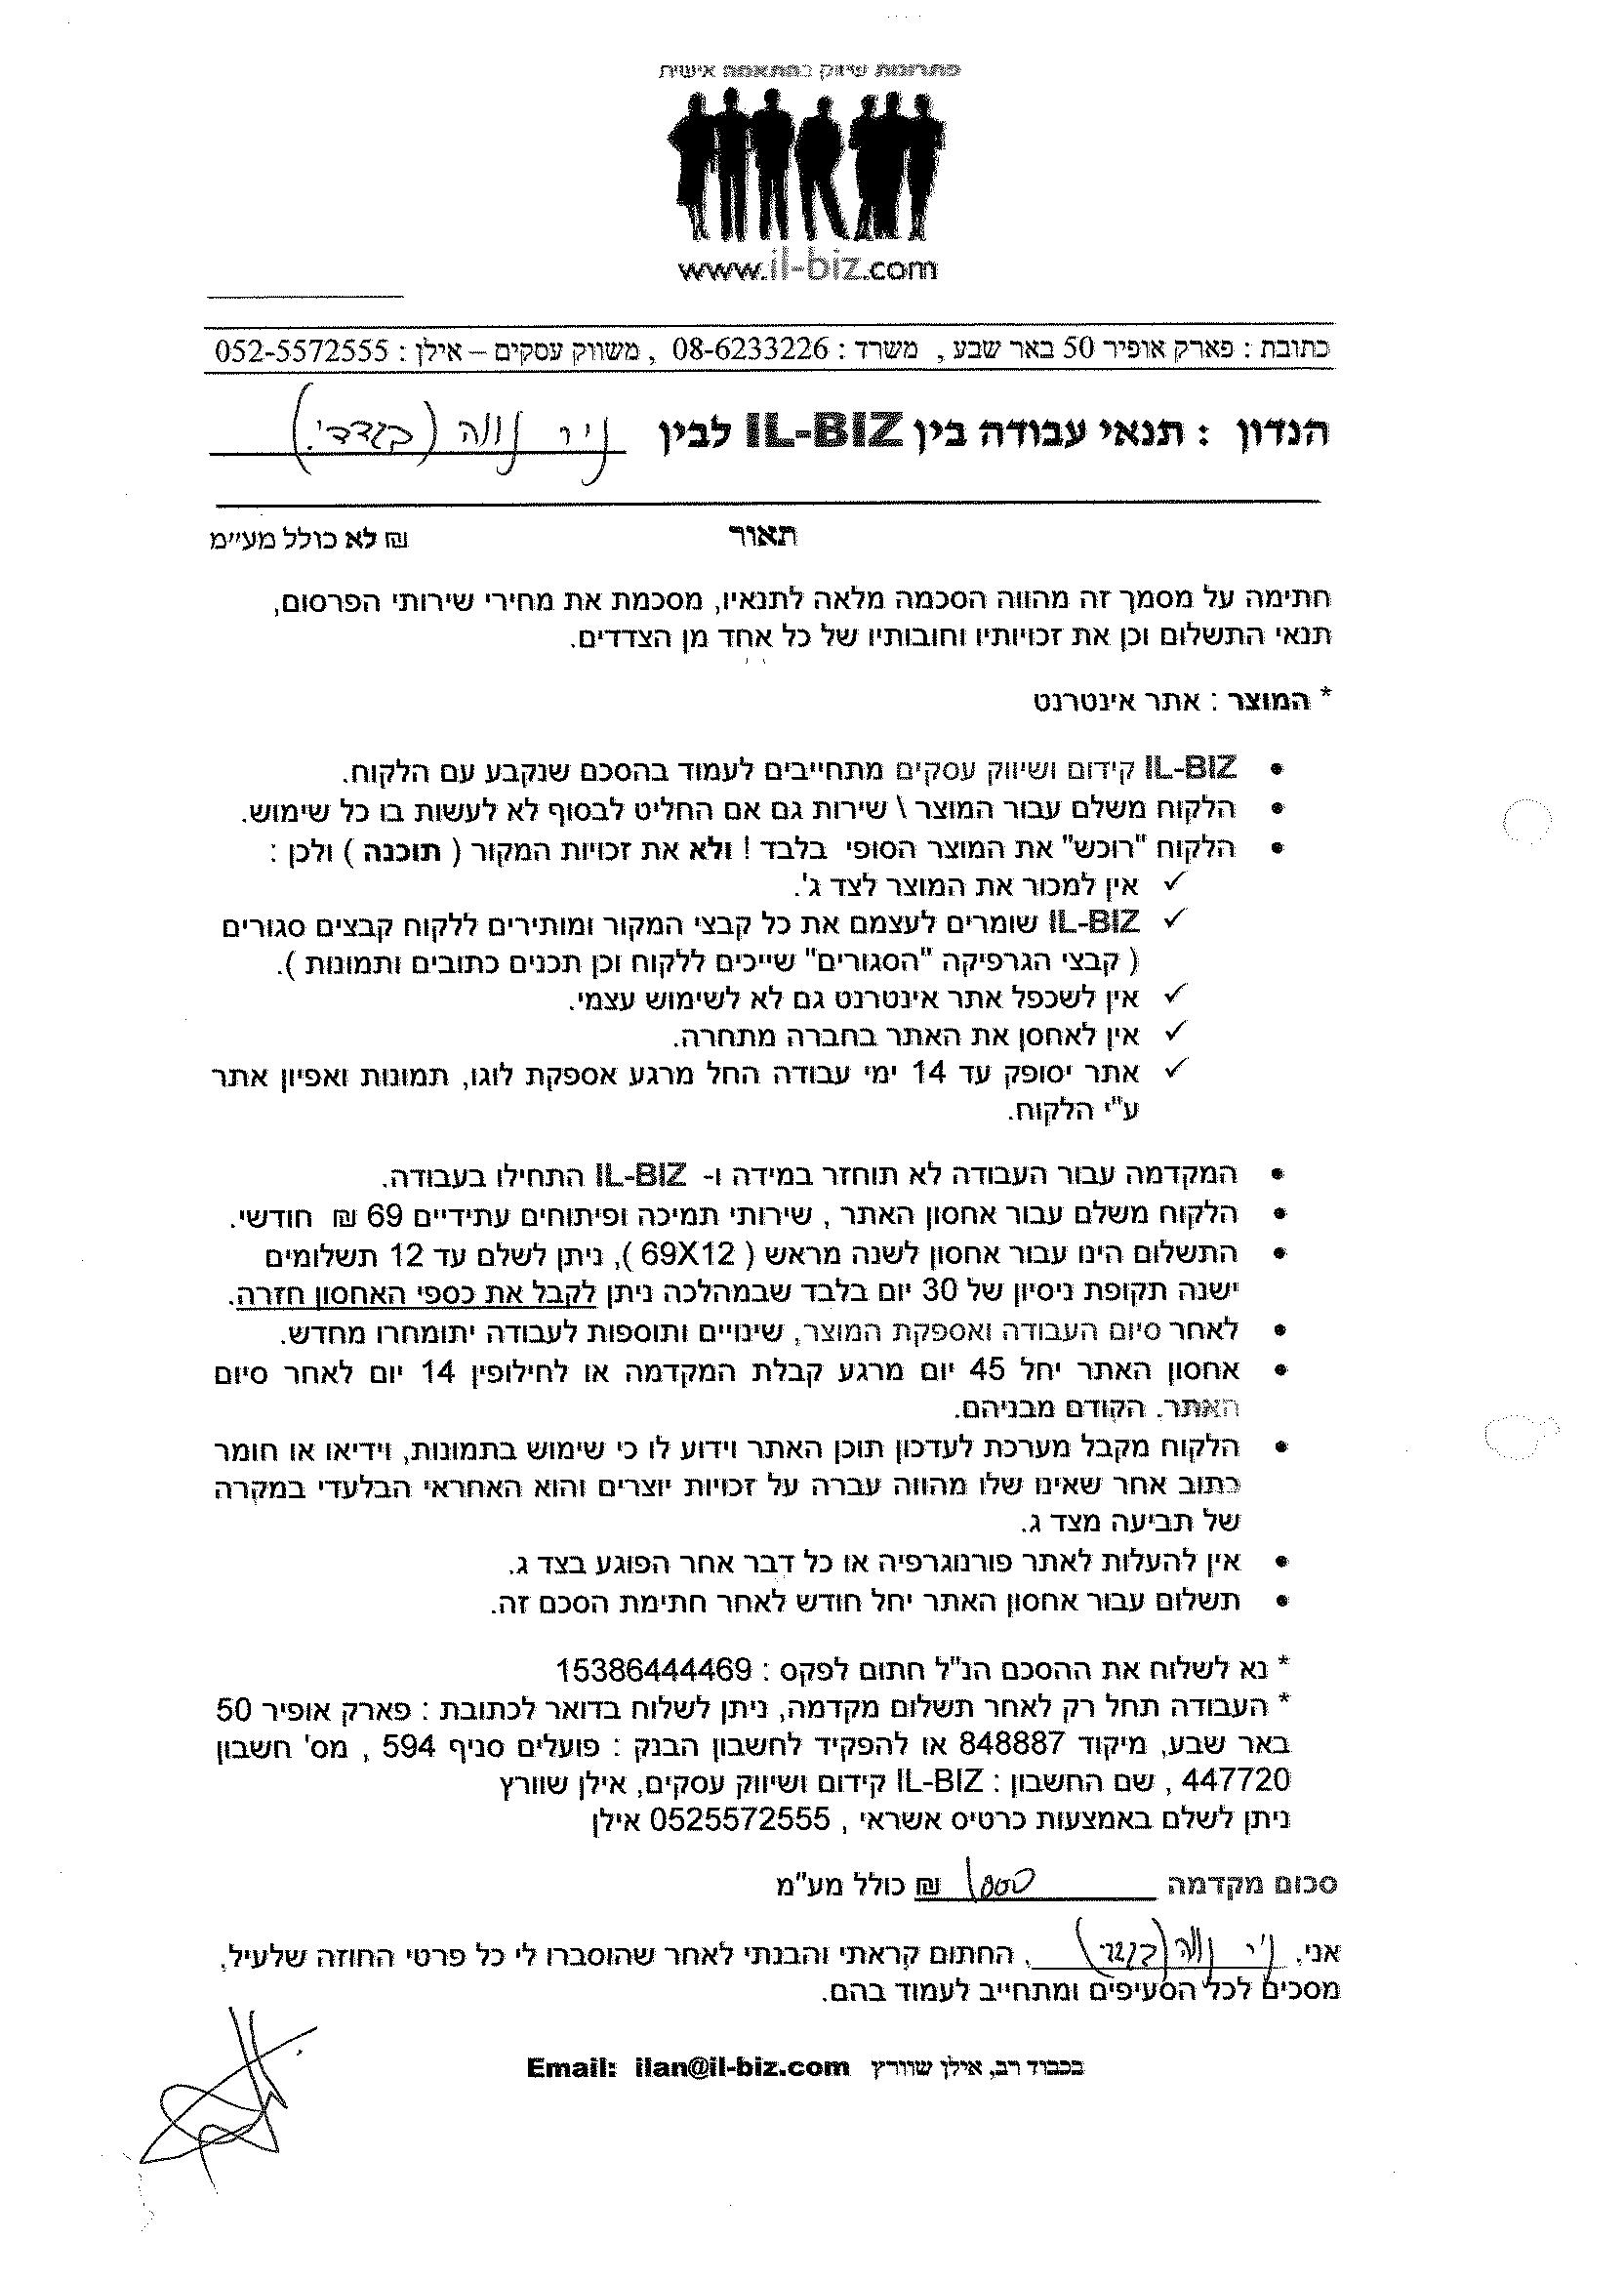 פתרונות שיווק בהתאמה אישית
www.il-biz.com
כתובת : פארק אופיר 50 באר שבע , משרד : 08-6233226 , משווק עסקים – אילן : 052-5572555
הנדון : תנאי עבודה בין IL-BIZ לבין ניר
תאור
₪ לא כולל מע״מ
חתימה על מסמך זה מהווה הסכמה מלאה לתנאיו, מסכמת את מחירי שירותי הפרסום,
תנאי התשלום וכן את זכויותיו וחובותיו של כל אחד מן הצדדים.
* המוצר : אתר אינטרנט
• IL-BIZ קידום ושיווק עסקים מתחייבים לעמוד בהסכם שנקבע עם הלקוח.
• הלקוח משלם עבור המוצר \ שירות גם אם החליט לבסוף לא לעשות בו כל שימוש.
• הלקוח "רוכש" את המוצר הסופי בלבד ! ולא את זכויות המקור ( תוכנה ) ולכן :
✓ אין למכור את המוצר לצד ג'.
✓ IL-BIZ שומרים לעצמם את כל קבצי המקור ומותירים ללקוח קבצים סגורים
( קבצי הגרפיקה "הסגורים" שייכים ללקוח וכן תכנים כתובים ותמונות ).
✓ אין לשכפל אתר אינטרנט גם לא לשימוש עצמי.
✓ אין לאחסן את האתר בחברה מתחרה.
✓ אתר יסופק עד 14 ימי עבודה החל מרגע אספקת לוגו, תמונות ואפיון אתר
ע"י הלקוח.
• המקדמה עבור העבודה לא תוחזר במידה ו- IL-BIZ התחילו בעבודה.
• הלקוח משלם עבור אחסון האתר , שירותי תמיכה ופיתוחים עתידיים 69 ₪ חודשי.
• התשלום הינו עבור אחסון לשנה מראש ( 69X12 ), ניתן לשלם עד 12 תשלומים
ישנה תקופת ניסיון של 30 יום בלבד שבמהלכה ניתן לקבל את כספי האחסון חזרה.
• לאחר סיום העבודה ואספקת המוצר, שינויים ותוספות לעבודה יתומחרו מחדש.
• אחסון האתר יחל 45 יום מרגע קבלת המקדמה או לחילופין 14 יום לאחר סיום
האתר. הקודם מבניהם.
• הלקוח מקבל מערכת לעדכון תוכן האתר וידוע לו כי שימוש בתמונות, וידיאו או חומר
כתוב אחר שאינו שלו מהווה עברה על זכויות יוצרים והוא האחראי הבלעדי במקרה
של תביעה מצד ג.
• אין להעלות לאתר פורנוגרפיה או כל דבר אחר הפוגע בצד ג.
• תשלום עבור אחסון האתר יחל חודש לאחר חתימת הסכם זה.
* נא לשלוח את ההסכם הנ"ל חתום לפקס : 15386444469
* העבודה תחל רק לאחר תשלום מקדמה, ניתן לשלוח בדואר לכתובת : פארק אופיר 50
באר שבע, מיקוד 848887 או להפקיד לחשבון הבנק : פועלים סניף 594 , מס' חשבון
447720 , שם החשבון : IL-BIZ קידום ושיווק עסקים, אילן שוורץ
ניתן לשלם באמצעות כרטיס אשראי , 0525572555 אילן
סכום מקדמה 1000 ₪ כולל מע"מ
אני, ניר , החתום קראתי והבנתי לאחר שהוסברו לי כל פרטי החוזה שלעיל,
מסכים לכל הסעיפים ומתחייב לעמוד בהם.
בכבוד רב, אילן שוורץ Email: ilan@il-biz.com